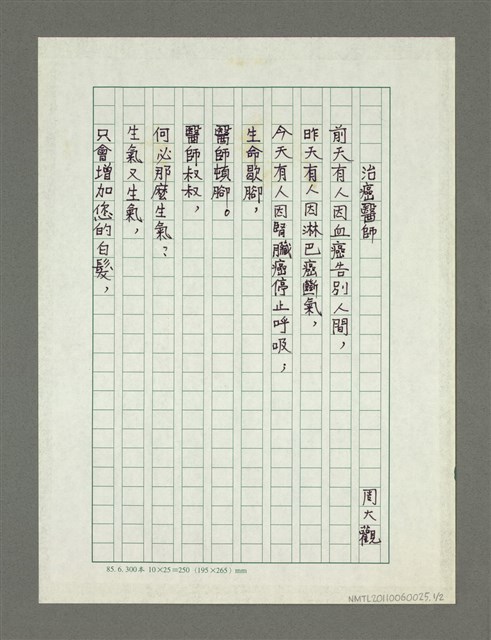 治癌醫師
周大觀
前天有人因血癌告別人間，
昨天有人因淋巴癌斷氣，
今天有人因腎臟癌停止呼吸；
生命歇腳，
醫師頓腳。
醫師叔叔，
何必那麼生氣？
生氣又生氣，
只會增加您的白髮，
85. 6. 300本 10×25=250（195×265）mm
NMTL20110060025.1/2